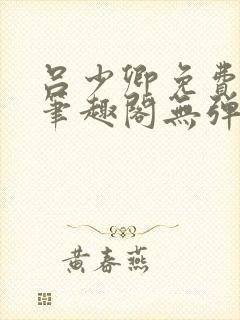 吕少卿免费
笔趣阁无弹
黄春燕